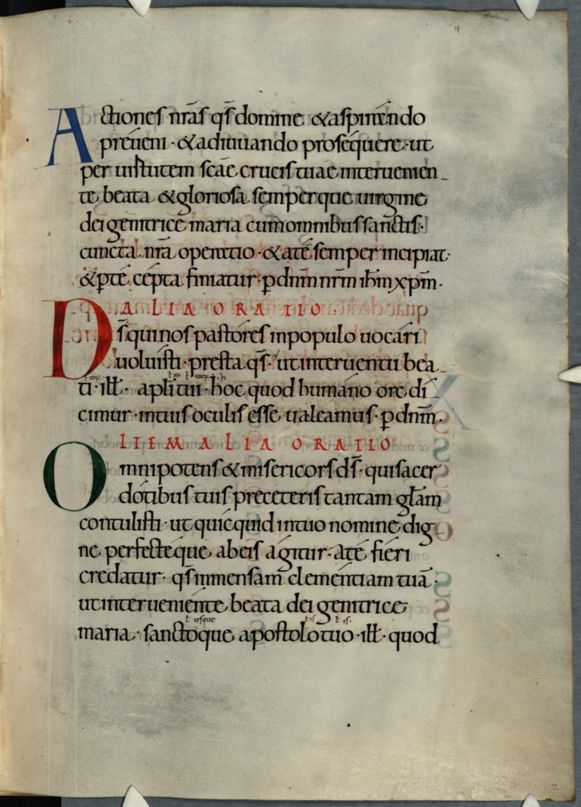 Actiones nr̄as qs̄ domine & aspirando
preueni · & adiuuando prosequere · ut
per uirtutem sc̄ae crucis tuae interuenien
te beata & gloriosa semperque uirgine
dei genitrice maria cum omnibus sanctis ·
cuncta nr̄a operatio · & a te semper incipiat ·
& p̱ te cepta finiatur · p̱ dn̄m nr̄m ih̄m xp̄m ·
ALIA ORATIO ·
Ds̄ qui nos pastores in populo uocari
uoluisti · presta qs̄ · ut interuentu bea
ti · ill̄ · apl̄i tui · hoc quod humano ore di
cimur · in tuis oculis esse ualeamus · p̱ dn̄m ·
ITEM ALIA ORATIO
Omnipotens & misericors ds̄ · qui sacer
dotibus tuis pre ceteris tantam gl̄am
contulisti · ut quicquid in tuo nomine dig
ne perfecteque ab eis agitur · a te fieri
credatur · qs̄ inmensam clementiam tuā ·
ut interueniente beata dei genitrice
maria · sanctoque apostolo tuo · ill̄ · quod